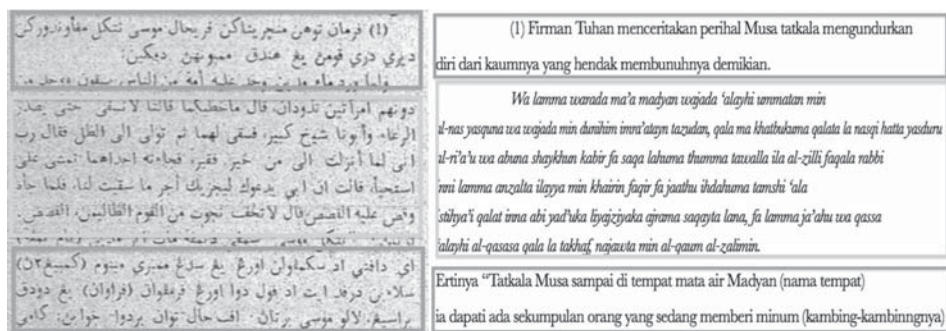 (١) فرمان توهن منچريتاكن ڤريحال موسى تتكل مڠاوندوركن
ديري دري قومڽ يڠ هندق ممبونهڽ دمكين:
ولما ورد ماء مدين وجد عليه أمة من الناس يسقون ووجد من
دونهم امرأتين تذودان، قال ماخطبكما قالتا لانسقي حتى يصدر
الرعاء وأبونا شيخ كبير، فسقى لهما ثم تولى الى الظل فقال رب
انى لما أنزلت الي من خير فقير، فجاءته احداهما تمشي على
استحيأ، قالت ان ابي يدعوك ليجزيك أجر ما سقيت لنا، فلما جاء
وقص عليه القصص قال لاتخف نجوت من القوم الظالمين، القصص.
اي داڤتي اد سكمڤولن اورڠ يڠ سدڠ ممبري مينوم (كمبيڠ٢ن)
(1) Firman Tuhan menceritakan perihal Musa tatkala mengundurkan
diri dari kaumnya yang hendak membunuhnya demikian.
Wa lamma warada ma'a madyan wajada 'alayhi ummatan min
al-nas yasquna wa wajada min dunihim imra'atayn tazudan, qala ma khatbukuma qalata la nasqi hatta yasduru
al-ri'a'u wa abuna shaykhun kabir fa saqa lahuma thumma tawalla ila al-zilli faqala rabbi
inni lamma anzalta ilayya min khairin faqir fa jaathu ihdahuma tamshi 'ala
stihya'i qalat inna abi yad'uka liyajziyaka ajrama saqayta lana, fa lamma ja'ahu wa qassa
'alayhi al-qasasa qala la takhaf, najawta min al-qaum al-zalimin.
Ertinya "Tatkala Musa sampai di tempat mata air Madyan (nama tempat)
ia dapati ada sekumpulan orang yang sedang memberi minum (kambing-kambinngnya)